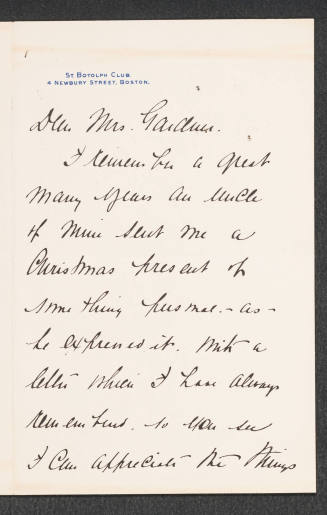 ST BOTOLPH CLUB
4 NEWBURY STREET, BOSTON.
Dear Mrs. Gardner.
I remember a great
many years an uncle
of mine sent me a
Christmas present of
something personal - as -
he expressed it. With a
letter which I have always
remembered. So you see
I can appreciate the things